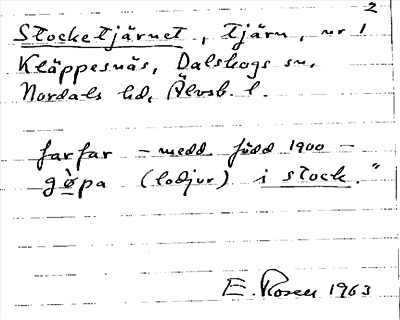 2
Stocketjärnet, tjärn, nr 1
Kläppesnäs, Dalskogs sn,
Nordals hd, Älvsb. l.
farfar – medd. född 1900 –
gö̀pa (lodjur) i stock."
E. Rosen 1963